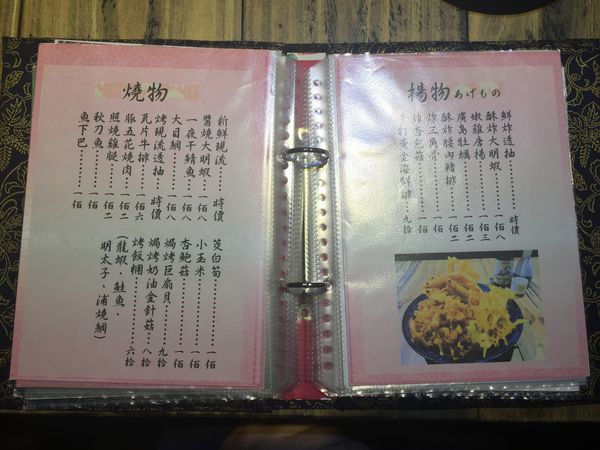 揚物 あげもの
鮮炸透抽………時價
酥炸大明蝦……一佰八
嫩雞唐揚………一佰三
廣島牡蠣………一佰二
酥炸腰內豬排……一佰二
炸三角骨………一佰
炸杏包菇………一佰
黃金海鮮餅……九拾
燒物
新鮮現流………時價
醬燒大明蝦……一佰八
一夜干鯖魚……一佰八
大目鯛…………一佰八
烤現流透抽……時價
瓦片牛排………一佰六
豚五花燒肉……一佰二
照燒雞腿………一佰二
秋刀魚…………一佰
魚下巴…………一佰
茭白筍…………一佰
小玉米…………一佰
杏鮑菇…………一佰
焗烤巨扇貝……九拾
焗烤奶油金針菇…八拾
烤飯糰…………六拾
(龍蝦、鮭魚、
明太子、浦燒鯛)